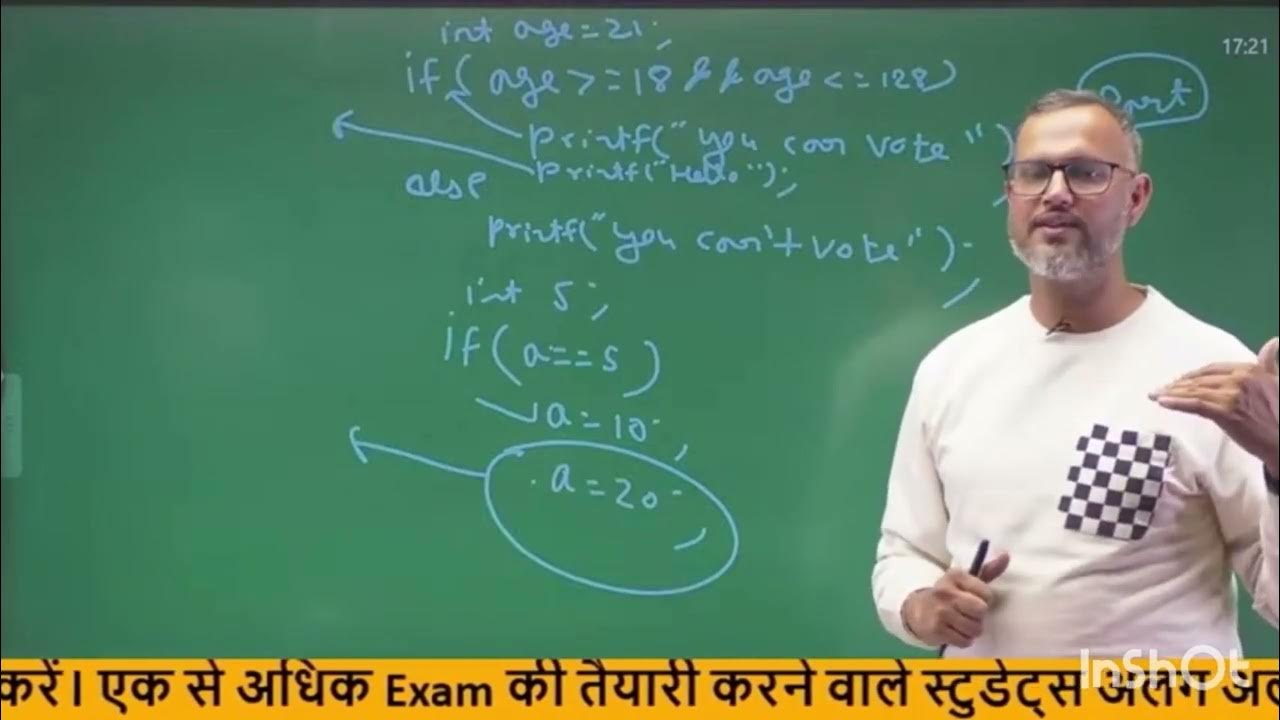 int age=21;
17:21
if (age >=18 && age <=128)
Part
printf("you can vote")
printf("Hello");
else
printf("you can't vote");
int 5;
if(a==5)
a=10;
a=20;
करें। एक से अधिक Exam की तैयारी करने वाले स्टुडेंट्स अलग अल
InShOt